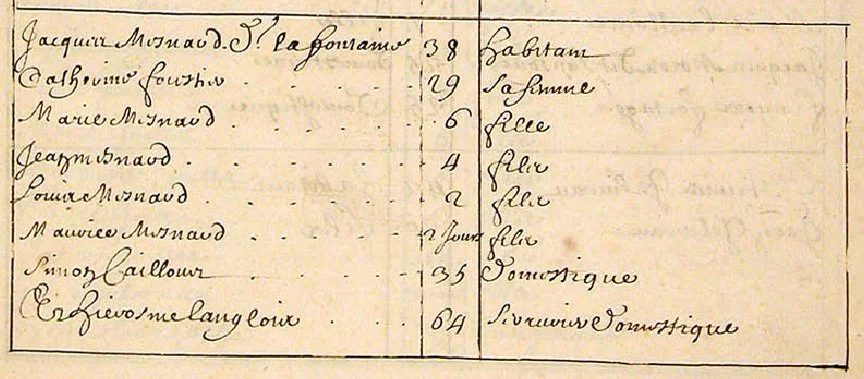 Jacques Mesnard d.t la fontaine 38 habitant
Catherine forestier . . . . 29 sa femme
Marie Mesnard . . . . . 6 fille
Jean mesnard . . . . . . 4 fils
Louis Mesnard . . . . . 2 fils
Maurice Mesnard . . . . 2 Jours fils
Simon Caillouer . . . . . 35 Domestique
hierosme Langlois . . . 64 Domestique